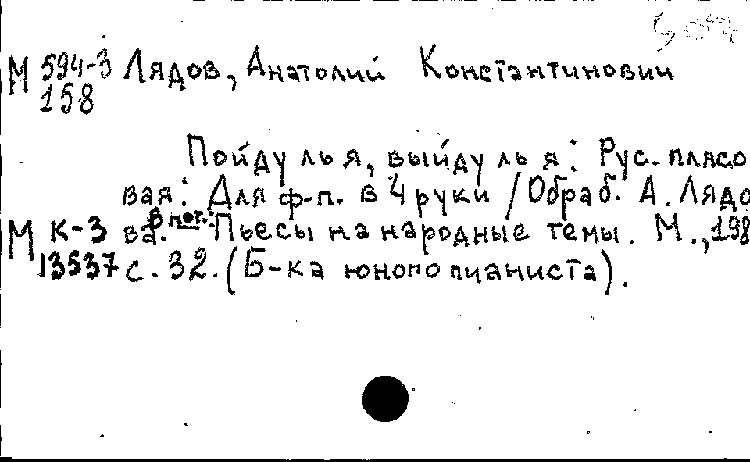 М 594-3 Лядов, Анатолий Константинович
158
Пойду ль я, выйду ль я: Рус. плясо
вая: Для ф-п. в 4 руки / Обраб. А. Лядо
М К-3 ва. В нот.: Пьесы на народные темы. М., 198
13537 с. 32. (Б-ка юного пианиста).